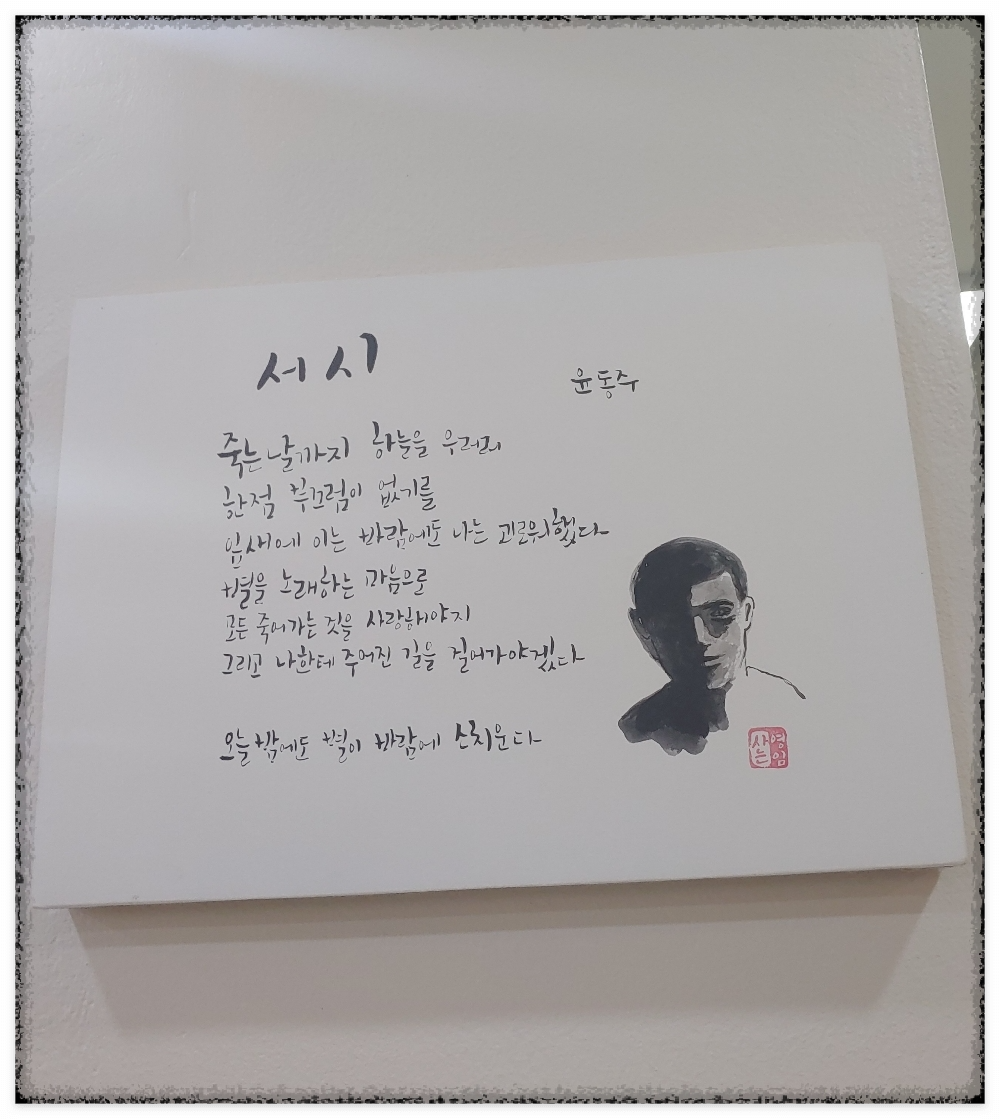 서시
윤동주
죽는 날까지 하늘을 우러러
한점 부끄럼이 없기를
잎새에 이는 바람에도 나는 괴로워했다
별을 노래하는 마음으로
모든 죽어가는 것을 사랑해야지
그리고 나한테 주어진 길을 걸어가야겠다
오늘 밤에도 별이 바람에 스치운다
영임
사는